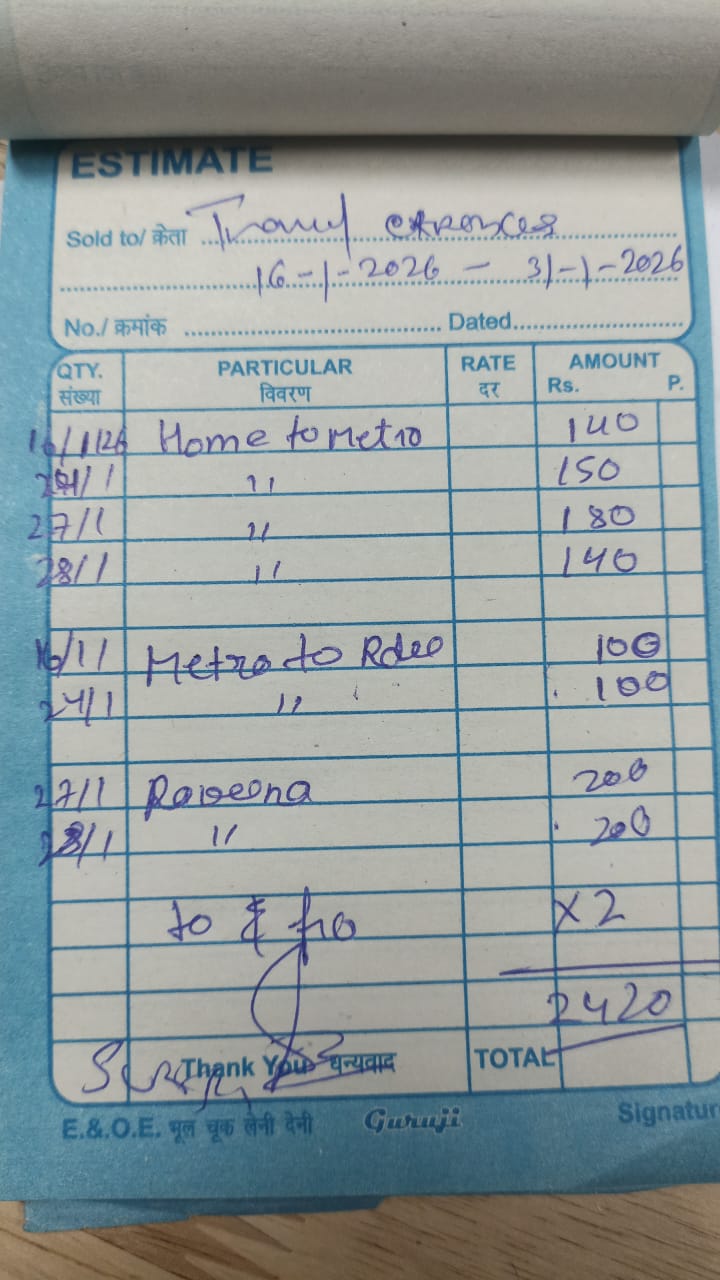 ESTIMATE
Sold to/ क्रेता Travel expenses
16-1-2026 - 31-1-2026
No./ क्रमांक Dated
QTY. संख्या PARTICULAR विवरण RATE दर AMOUNT Rs. P.
16/1/26 Home to Metro 140
24/1 " 150
27/1 " 180
28/1 " 140
16/1 Metro to 100
24/1 " 100
27/1 Raveena 200
28/1 " 200
to & fro X 2
2420
Thank You धन्यवाद TOTAL
E.&.O.E. भूल चूक लेनी देनी Guruji Signatur